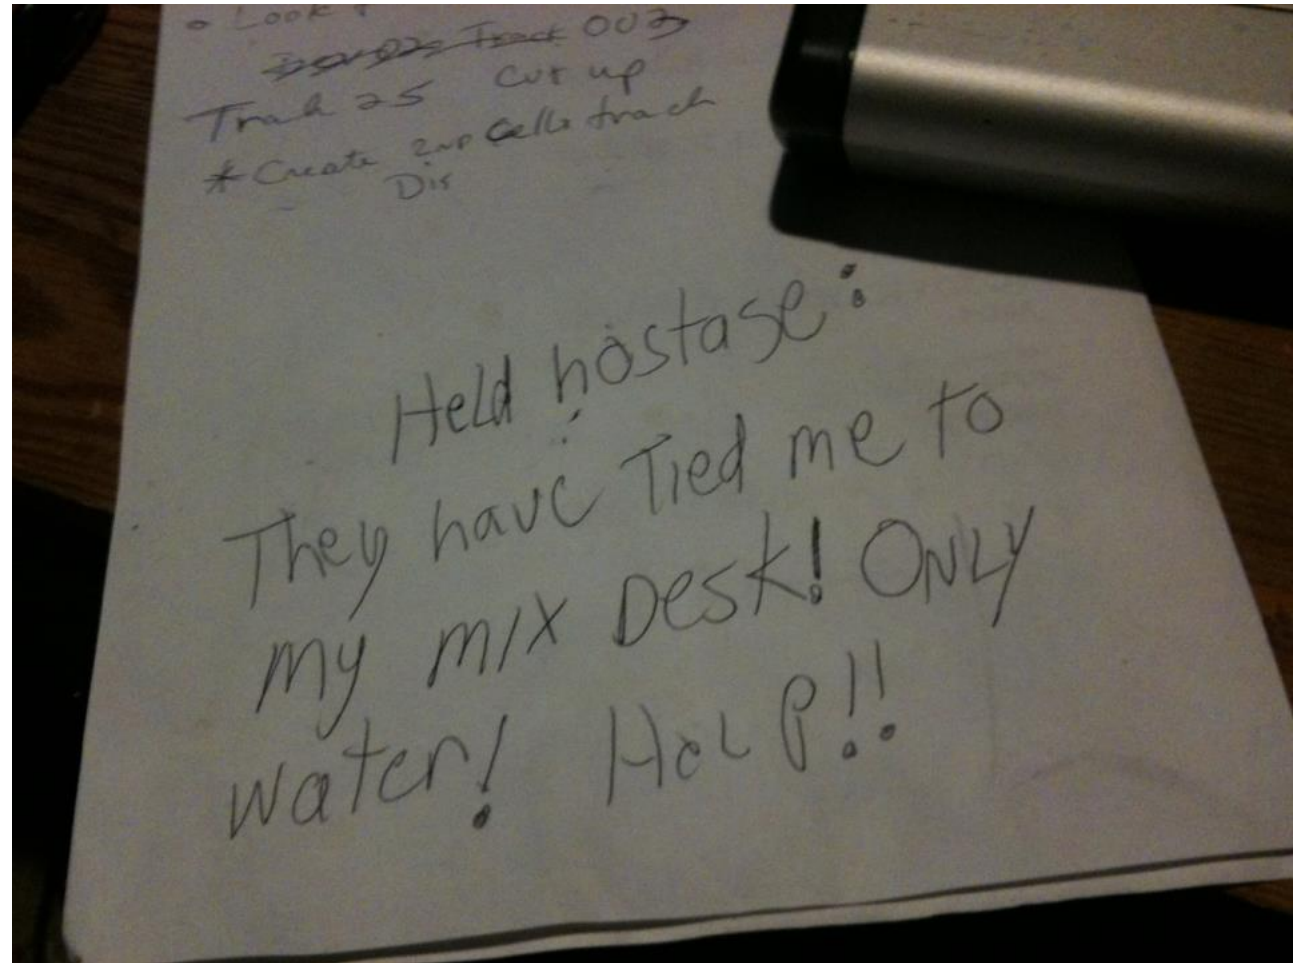 • Look
Track 003
Track 25 Cut up
* Create 2nd Cello track
Dir
Held hostage:
They have Tied me to
my mix Desk! ONLY
water! HeLP!!